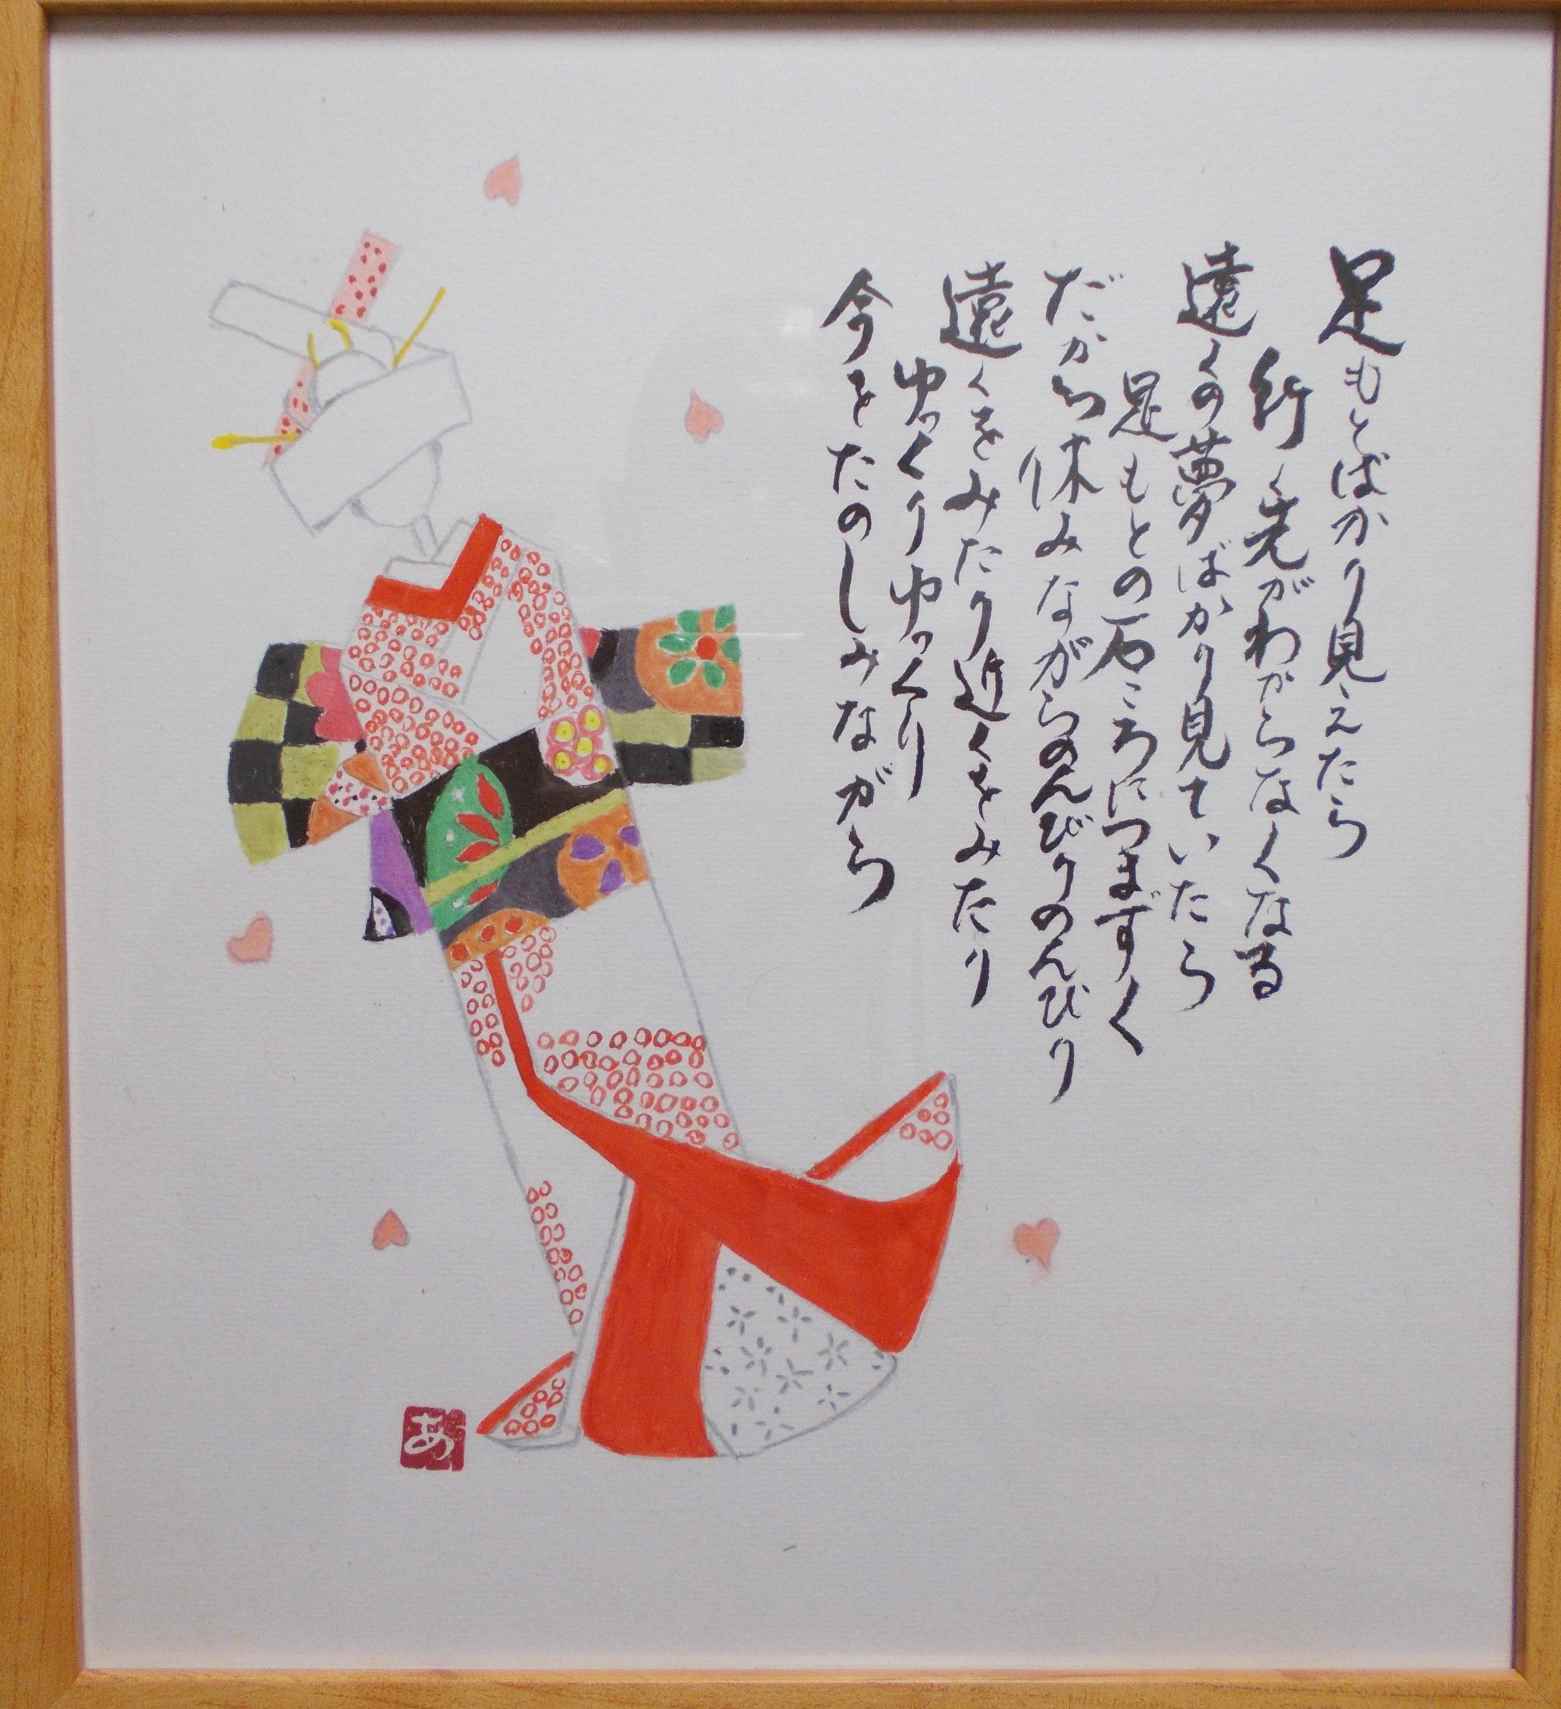 足もとばかり見えたら
行く先がわからなくなる
遠くの夢ばかり見ていたら
足もとの石ころにつまずく
だから休みながらのんびりのんびり
遠くをみたり近くをみたり
ゆっくりゆっくり
今をたのしみながら
あ